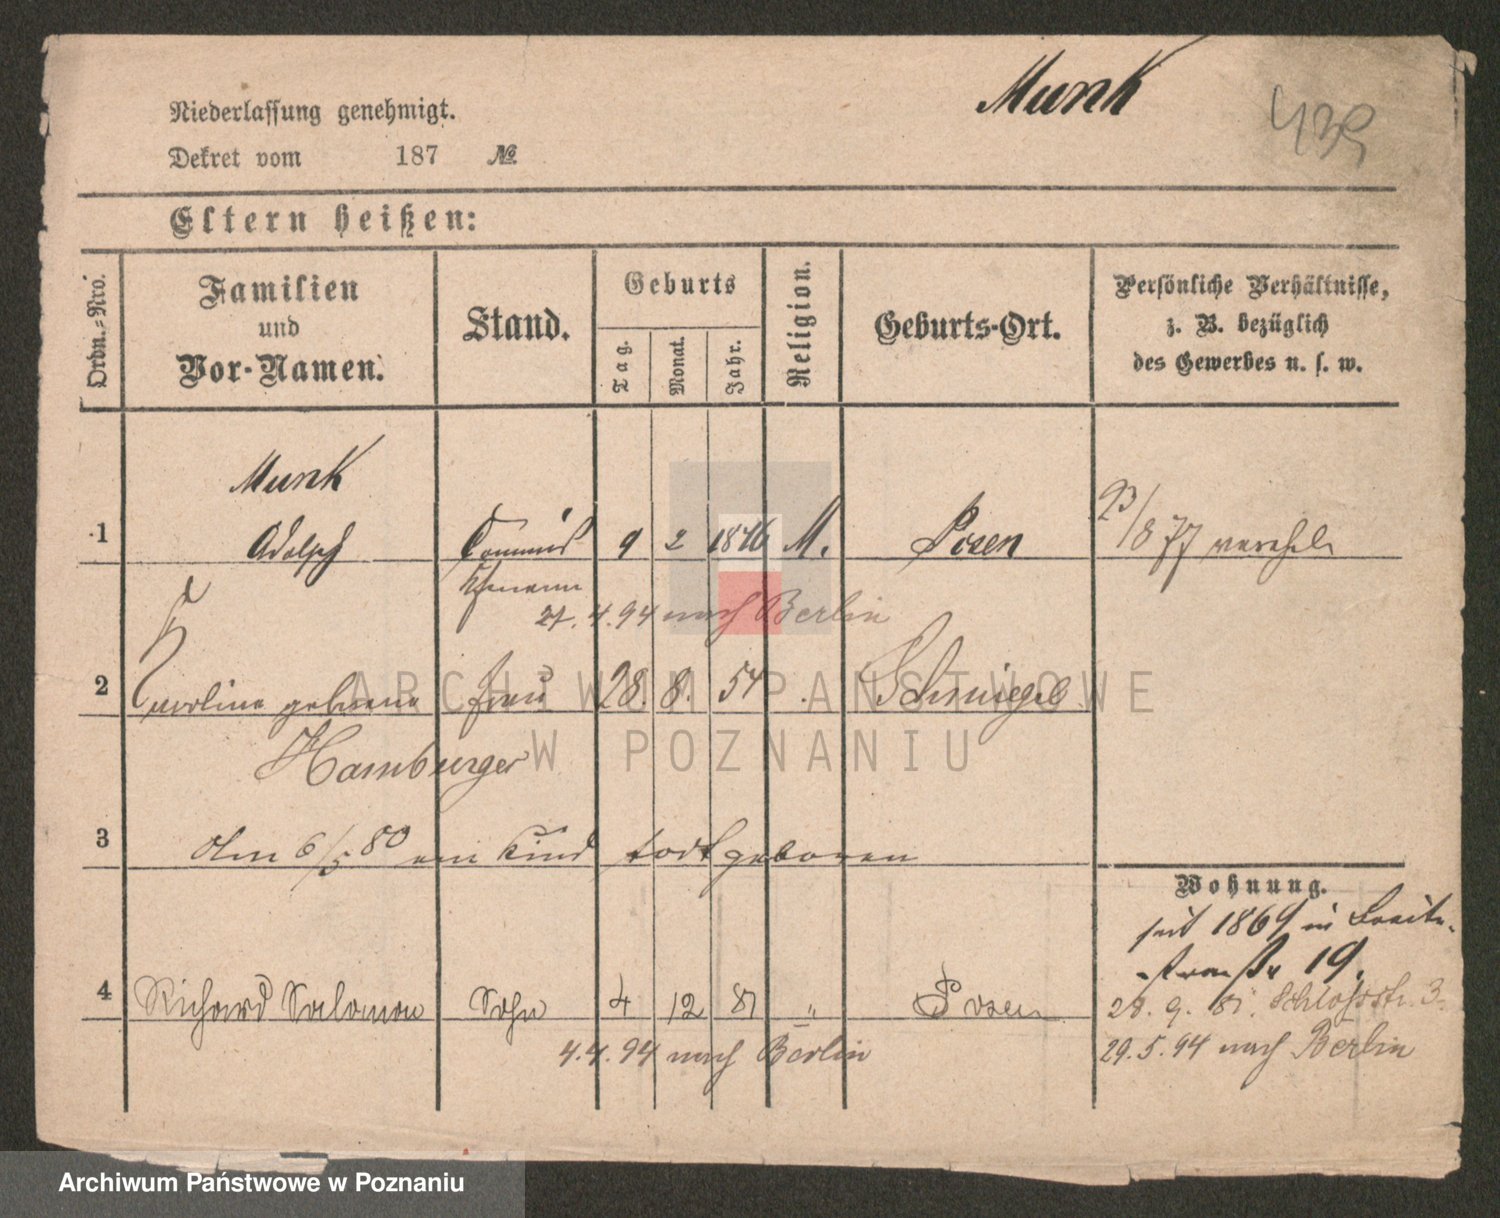 Munk
439
Niederlassung genehmigt.
Dekret vom 187 №
Eltern heißen:
Ordn.=Nro.
Familien und Vor-Namen.
Stand.
Geburts
Tag.
Monat.
Jahr.
Religion.
Geburts-Ort.
Persönliche Verhältnisse,
z. B. bezüglich
des Gewerbes u. s. w.
Munk
1 Adolph Commis 9 2 1846 M. Posen
23/8 77 verehel.
Kfmann
27.4.94 nach Berlin
2 geborene Frau 28. 8. 54 . Schmiegel
Hamburger
3 Am 6/5 80 ein Kind todt geboren
Wohnung.
seit 1869 in Breite-
-straße 19.
4 Richard Salomon Sohn 4 12 81 " Posen
28. 9. 81. Schloßstr. 3.
4.4.94 nach Berlin
29.5.94 nach Berlin
ARCHIWUM PAŃSTWOWE
W POZNANIU
Archiwum Państwowe w Poznaniu